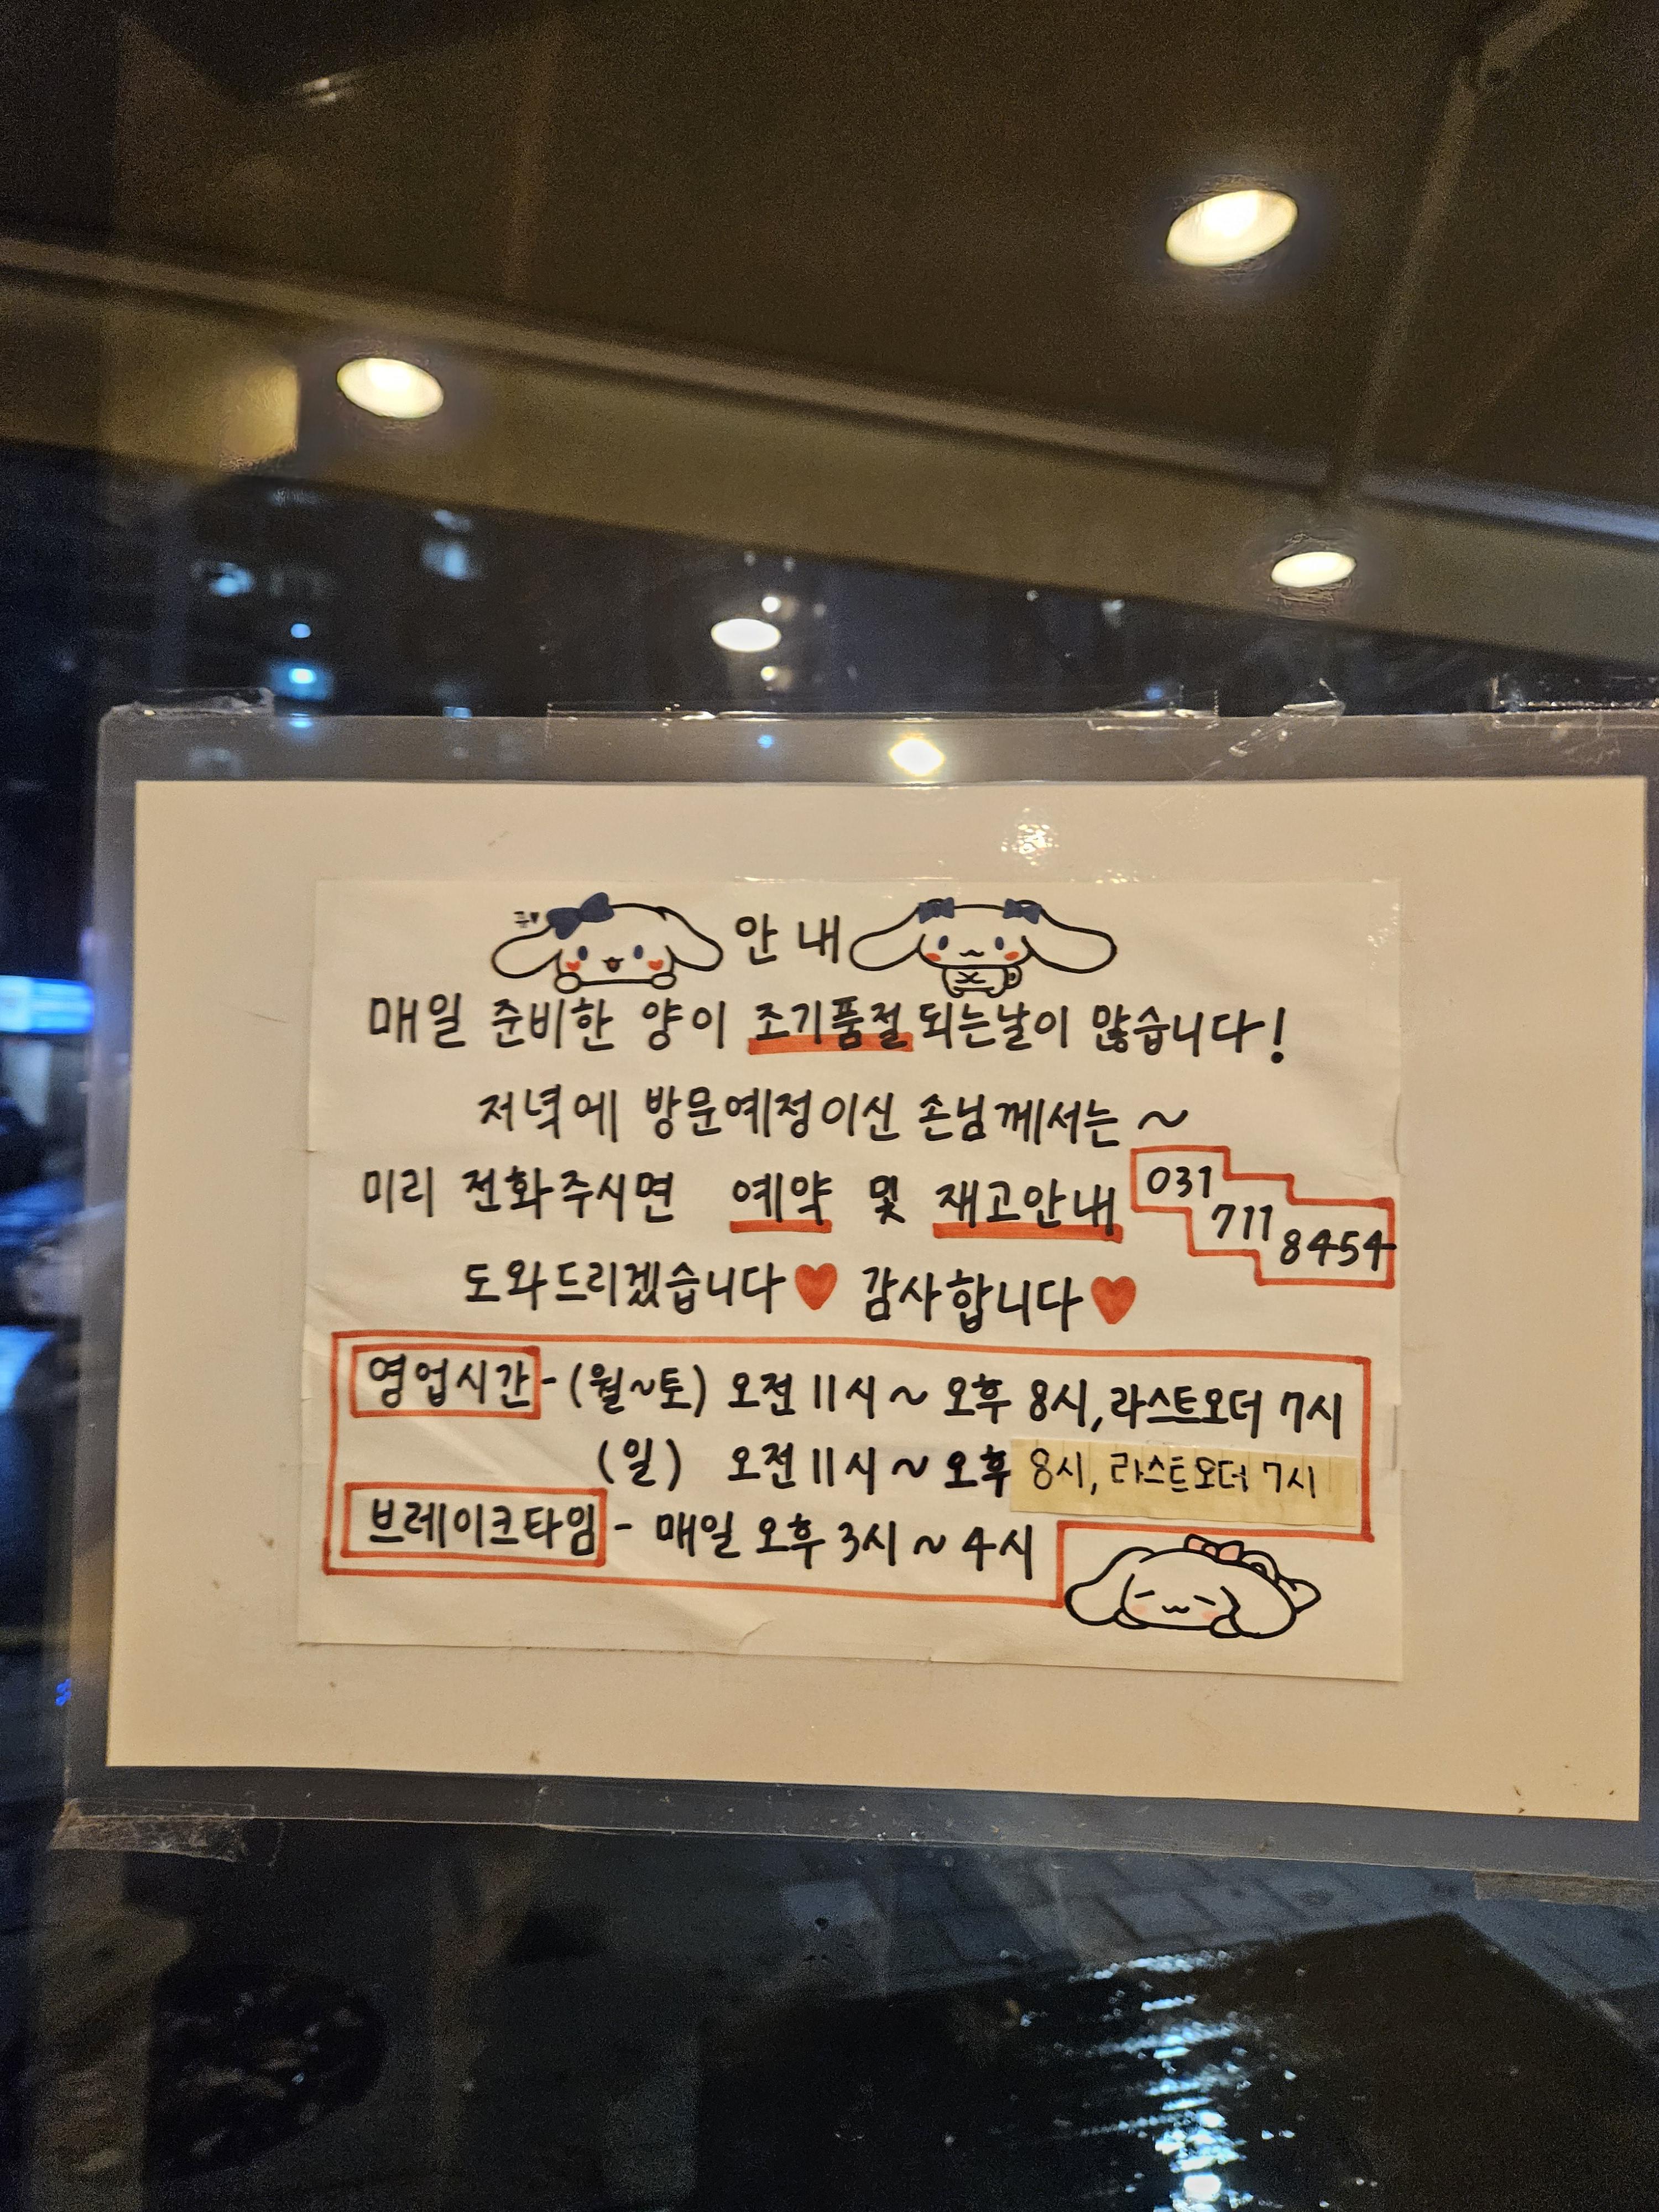 안내
매일 준비한 양이 조기품절 되는날이 많습니다!
저녁에 방문예정이신 손님께서는 ~
미리 전화주시면 예약 및 재고안내
031
711
8454
도와드리겠습니다♥ 감사합니다♥
영업시간 - (월~토) 오전 11시 ~ 오후 8시, 라스트오더 7시
(일) 오전 11시 ~ 오후 8시, 라스트오더 7시
브레이크타임 - 매일 오후 3시 ~ 4시